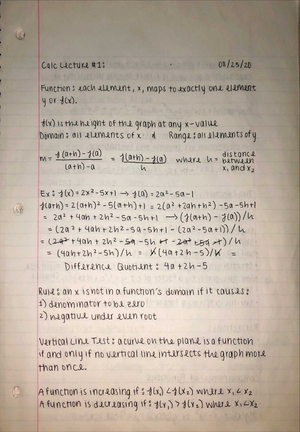 Calc Lecture #1: 08/25/20
Function: each element, x, maps to exactly one element
y or f(x).
f(x) is the height of the graph at any x-value
Domain: all elements of x & Range: all elements of y
m = f(a+h)-f(a) / (a+h)-a = f(a+h)-f(a) / h where h = distance between x₁ and x₂
Ex: f(x) = 2x²-5x+1 → f(a) = 2a²-5a-1
f(a+h) = 2(a+h)²-5(a+h)+1 = 2(a²+2ah+h²)-5a-5h+1
= 2a²+4ah+2h²-5a-5h+1 → (f(a+h)-f(a))/h
= (2a²+4ah+2h²-5a-5h+1-(2a²-5a+1))/h
= (2a²+4ah+2h²-5a-5h+1-2a²+5a-1)/h
= (4ah+2h²-5h)/h = h(4a+2h-5)/h =
Difference Quotient: 4a+2h-5
Rule: an x is not in a function's domain if it causes:
1) denominator to be zero
2) negative under even root
Vertical Line Test: a curve on the plane is a function
if and only if no vertical line intersects the graph more
than once.
A function is increasing if: f(x₁) < f(x₂) where x₁ < x₂
A function is decreasing if: f(x₁) > f(x₂) where x₁ < x₂